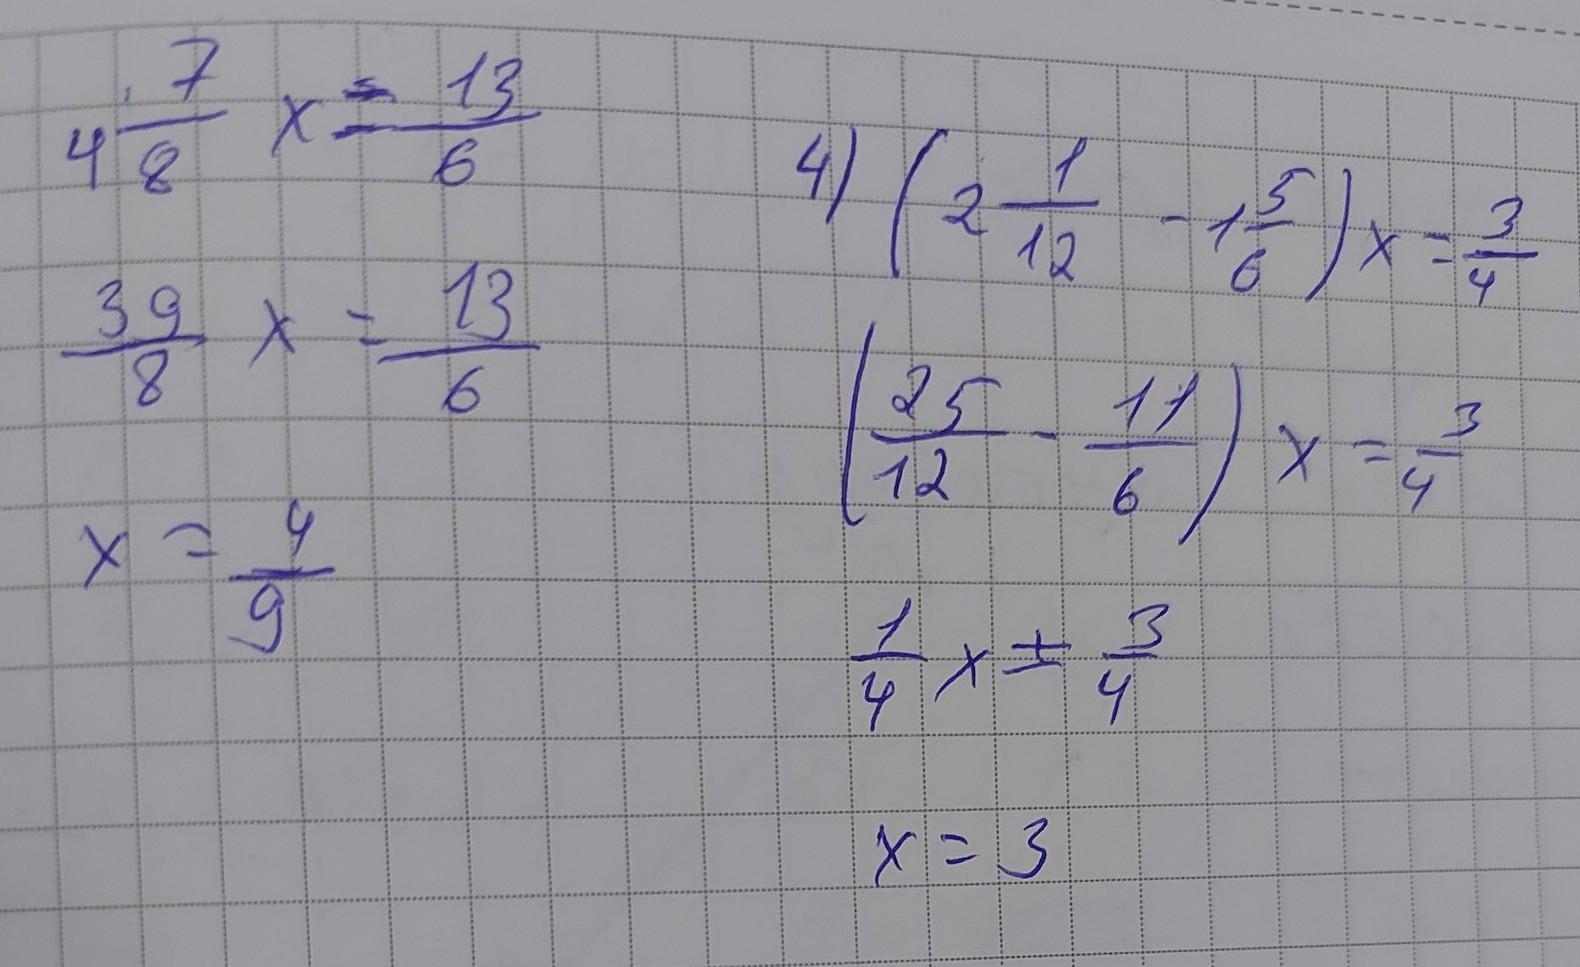 4 7/8 x = 13/6
39/8 x = 13/6
x = 4/9
4) (2 1/12 - 1 5/6) x = 3/4
(25/12 - 11/6) x = 3/4
1/4 x = 3/4
x = 3